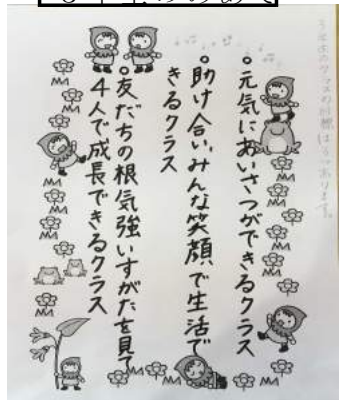 うさ木のクラスの目標は三つあります。
・元気にあいさつができるクラス
・助け合い、みんな笑顔で生活で
きるクラス
・友だちの根気強いすがたを見て
4人で成長できるクラス